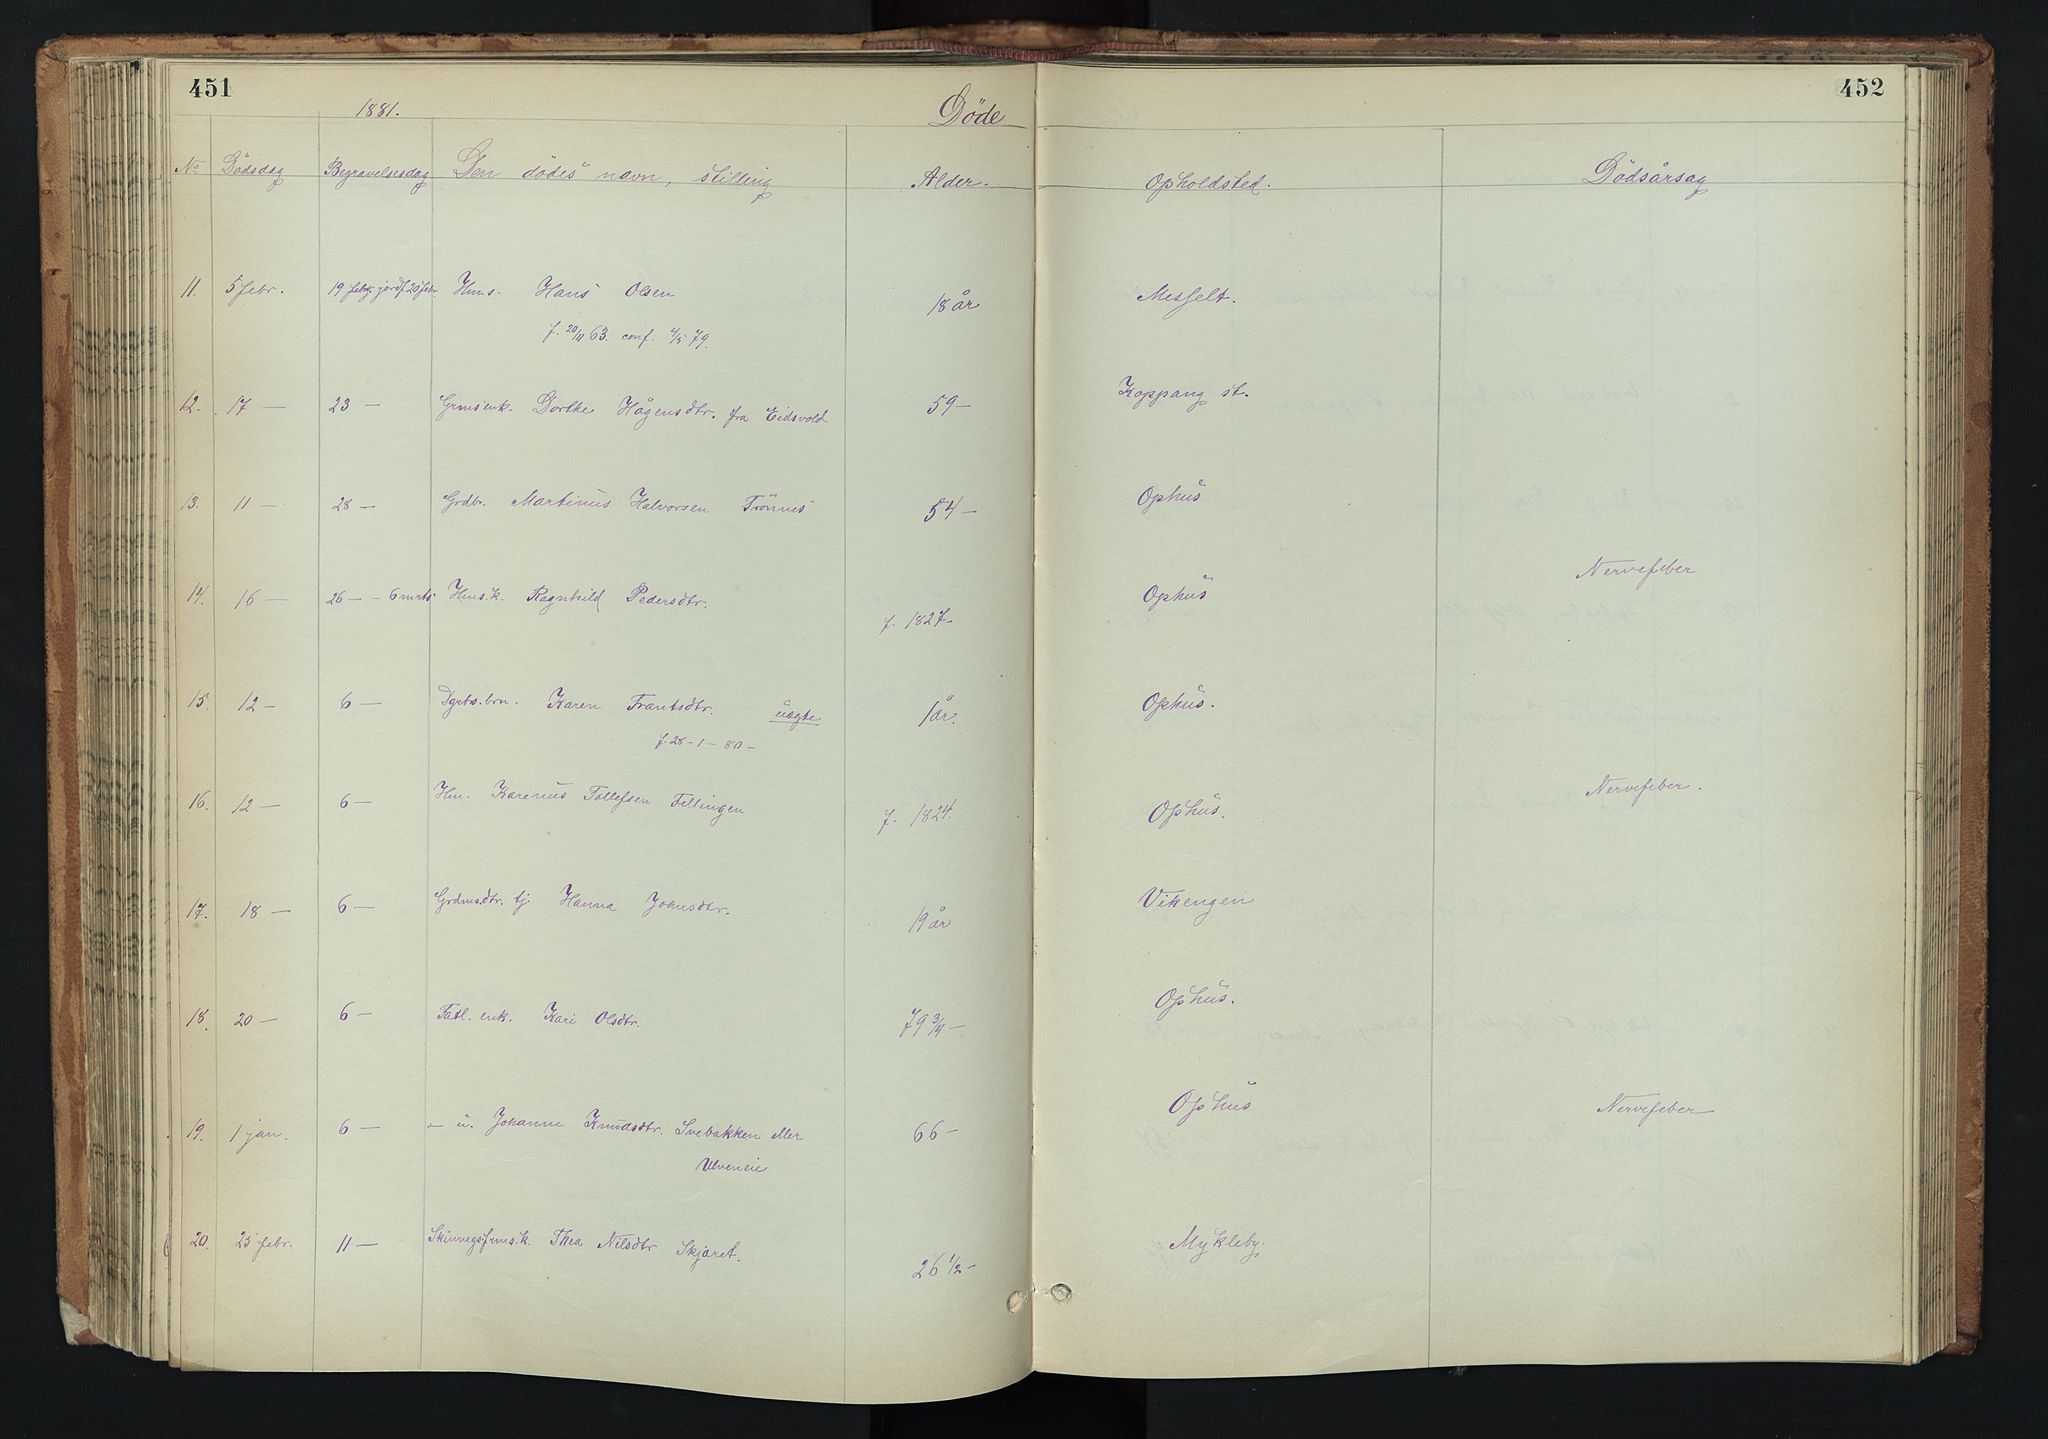 451
1881.
Döde
452
No Dödsdag Begravelsesdag Den dödes navn, stilling Alder. Opholdsted. Dödsårsag
11. 5 febr. 19 febr. jordf 20 febr. Hms. Hans Olsen 18 år Messelt.
f. 20/11 63. conf. 4/5 79.
12. 17 — 23 — Grmsenk. Dorthe Hågensdtr. fra Eidsvold 59 — Koppang st.
13. 11 — 28 — Grdbr. Martinus Halvorsen Trönnes 54 — Ophus
14. 16 — 26 — - 6 mrts Hms.k. Ragnhild Pedersdtr. f. 1827. Ophus Nervefeber
15. 12 — 6 — Dgrts.brn. Karen Frantsdtr. uægte 1 år. Ophus.
f. 28 - 1 - 80 —
16. 12 — 6 — Hm. Karenus Tollefsen Fillingen f. 1824. Ophus. Nervefeber.
17. 18 — 6 — Grdms.dtr. tj. Hanna Johnsdtr. 19 år Vikengen
18. 20 — 6 — Fatl. enk. Kari Olsdtr. 79 3/4 — Ophus.
19. 1 jan. 6 — — u. Johanne Knudsdtr. Svebakken eller 66 — Ophus Nervefeber
Ulveneie
20. 25 febr. 11 — Thea Nilsdtr Skjæret. 26 1/2 — Mykleby.